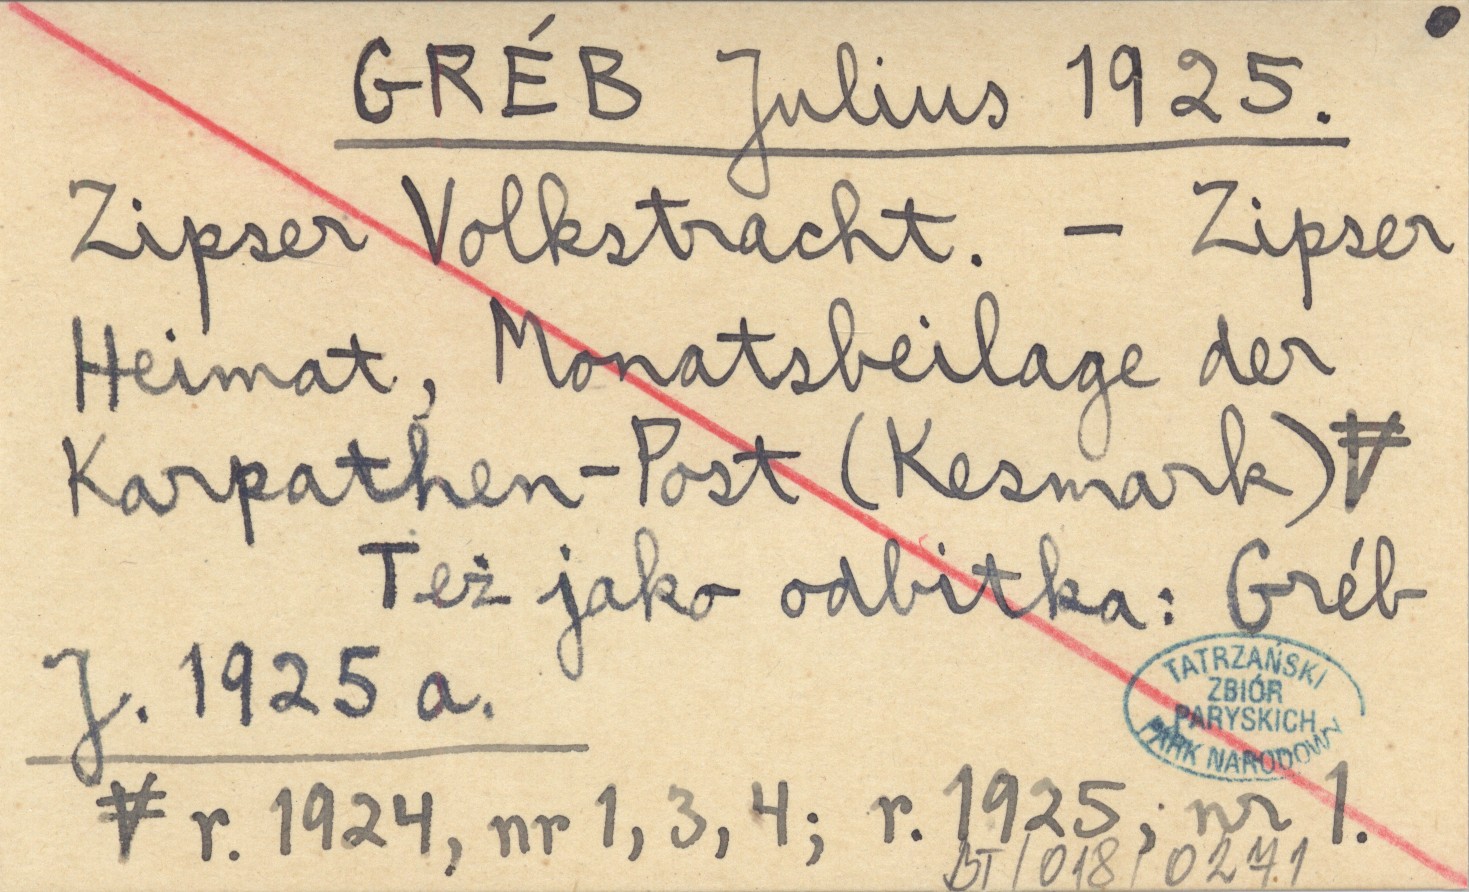 GRÉB Julius 1925.
Zipser Volkstracht. – Zipser
Heimat, Monatsbeilage der
Karpathen-Post (Kesmark)
Też jako odbitka: Gréb
J. 1925 a.
TATRZAŃSKI
ZBIÓR
PARYSKICH
PARK NARODOWY
r. 1924, nr 1, 3, 4; r. 1925, nr 1.
BT/018/0271